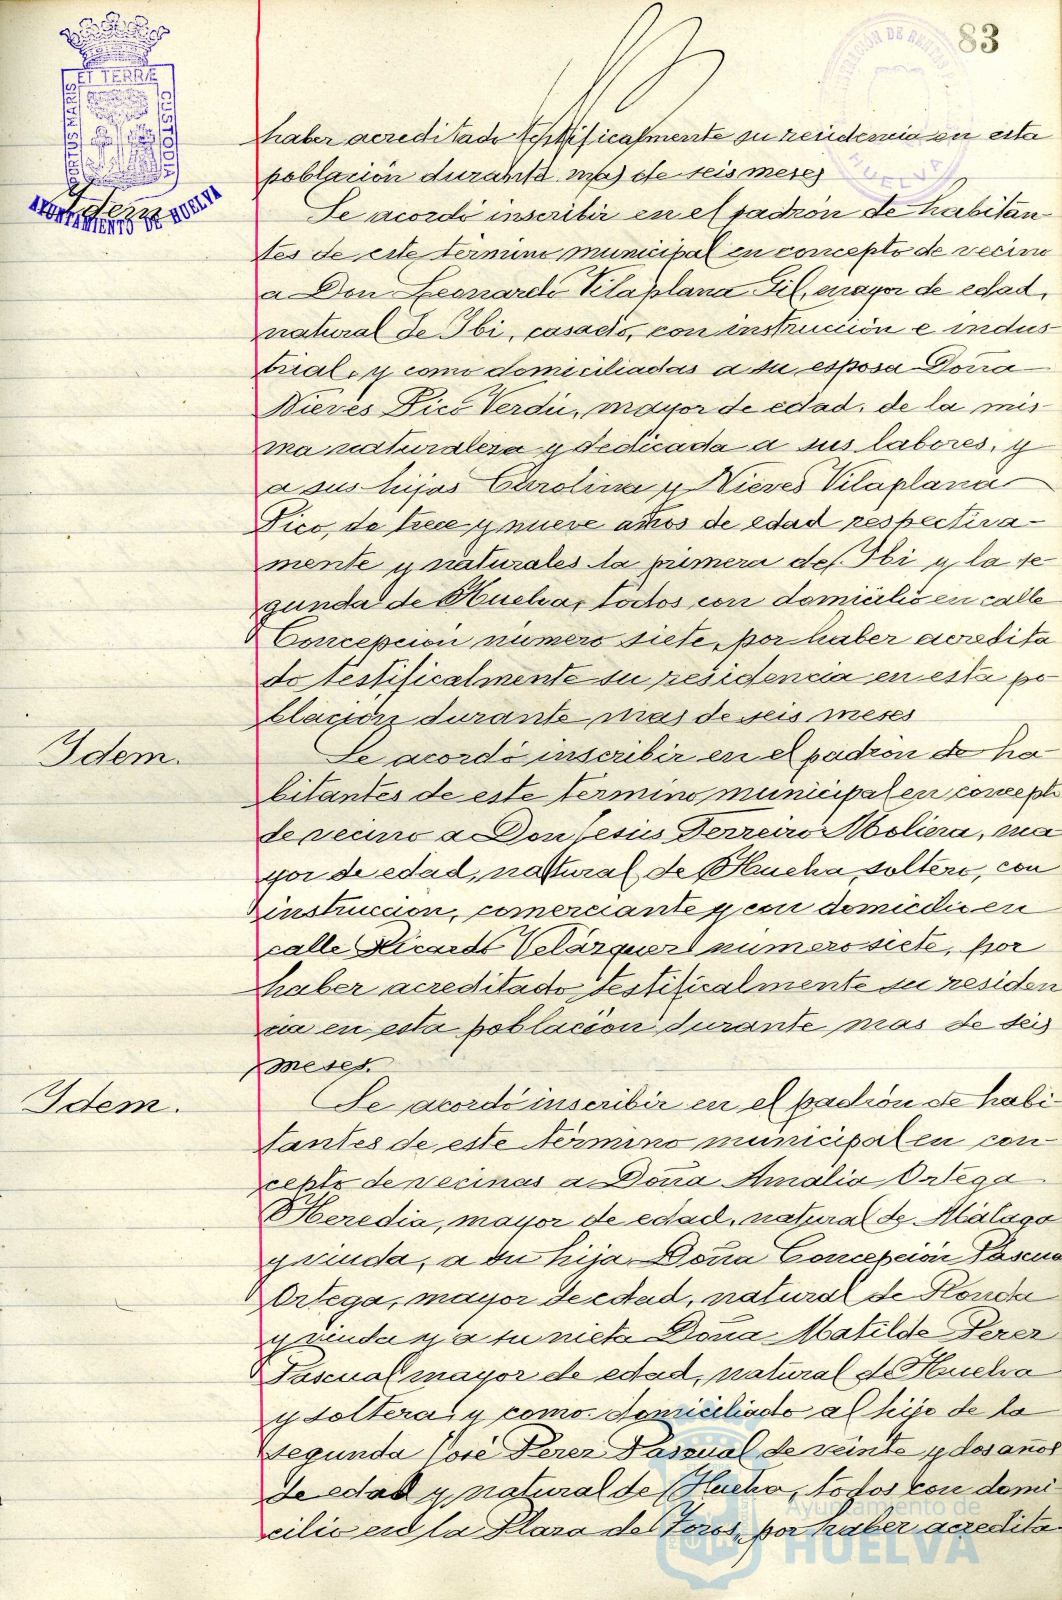 83
PORTUS MARIS
ET TERRÆ
CUSTODIA
AYUNTAMIENTO DE HUELVA
HUELVA
haber acreditado testificalmente su residencia en esta
población durante mas de seis meses
Idem
Se acordó inscribir en el padrón de habitan-
tes de este término municipal en concepto de vecino
a Don Leonardo Vilaplana Gil, mayor de edad,
natural de Ibi, casado, con instrucción e indus
trial, y como domiciliadas a su esposa Doña
Nieves Picó Verdú, mayor de edad, de la mis-
ma naturaleza y dedicada a sus labores, y
a sus hijas Carolina y Nieves Vilaplana
Pico, de trece y nueve años de edad respectiva-
mente y naturales la primera de Ibi y la se
gunda de Huelva, todos con domicilio en calle
Concepción número siete, por haber acredita
do testificalmente su residencia en esta po-
blación durante mas de seis meses
Idem.
Se acordó inscribir en el padrón de ha-
bitantes de este término municipal en concepto
de vecino a Don Jesús Ferreiro Moliera, ma
yor de edad, natural de Huelva, soltero, con
instrucción, comerciante y con domicilio en
calle Ricardo Velázquez número siete, por
haber acreditado testificalmente su residen
cia en esta población durante mas de seis
meses.
Idem.
Se acordó inscribir en el padrón de habi-
tantes de este término municipal en con-
cepto de vecinas a Doña Amalia Ortega
Heredia, mayor de edad, natural de Málaga
y viuda, a su hija Doña Concepción Pascual
Ortega, mayor de edad, natural de Ronda
y viuda y a su nieta Doña Matilde Perez
Pascual mayor de edad, natural de Huelva
y soltera, y como domiciliado al hijo de la
segunda José Perez Pascual de veinte y dos años
de edad y natural de Huelva, todos con domi-
cilio en la Plaza de Toros, por haber acredita
Ayuntamiento de
HUELVA